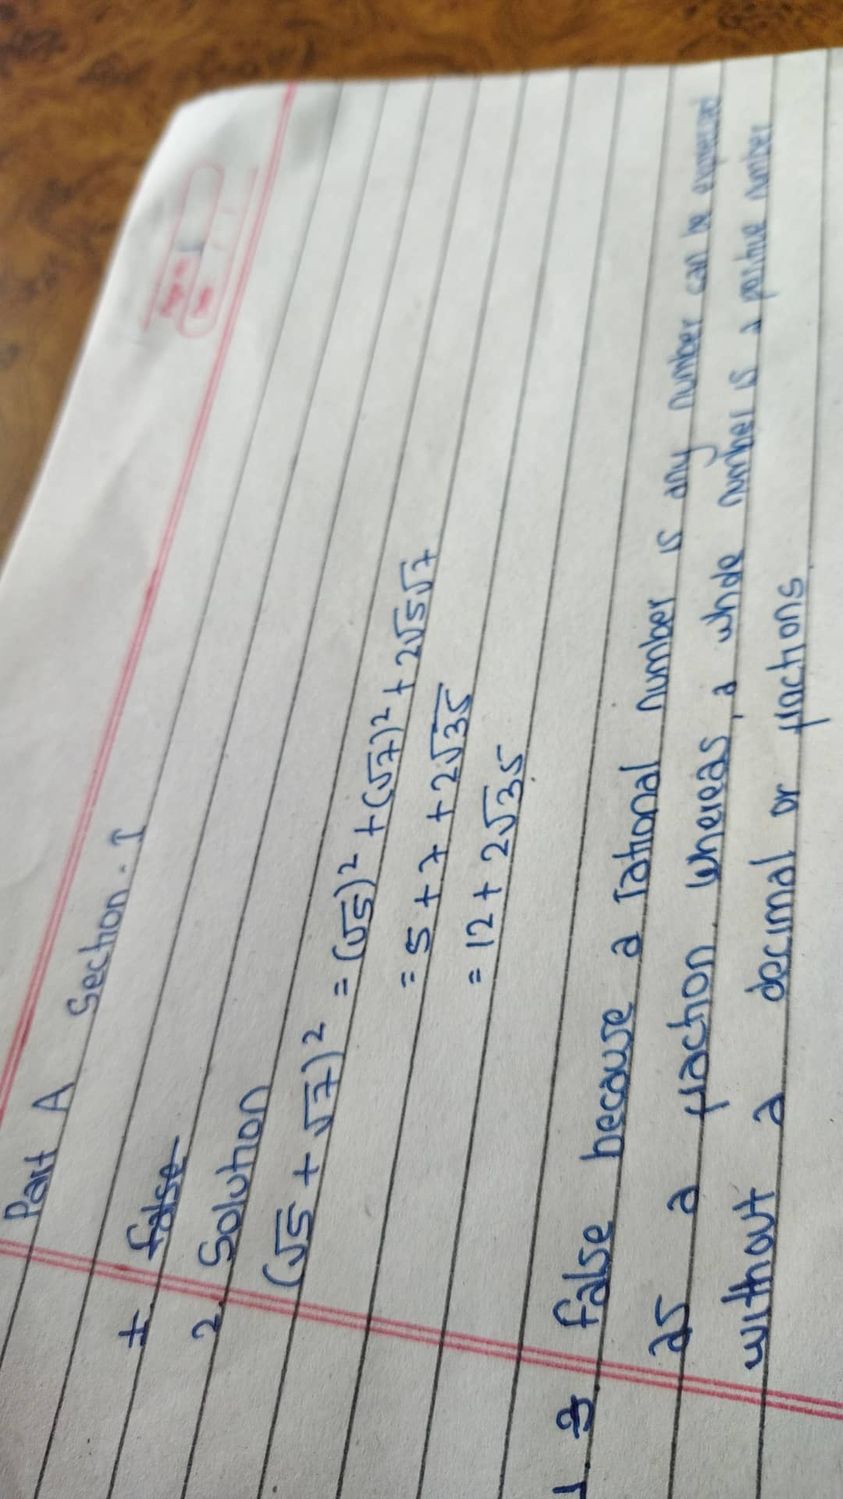 Part A
Section. I
1. false
2. Solution
(√5 + √7)² = (√5)² + (√7)² + 2√5√7
= 5 + 7 + 2√35
= 12 + 2√35
1. 3 false because a rational number is any number can be expressed
as a fraction. Whereas, a whole number is a positive number
without a decimal or fractions